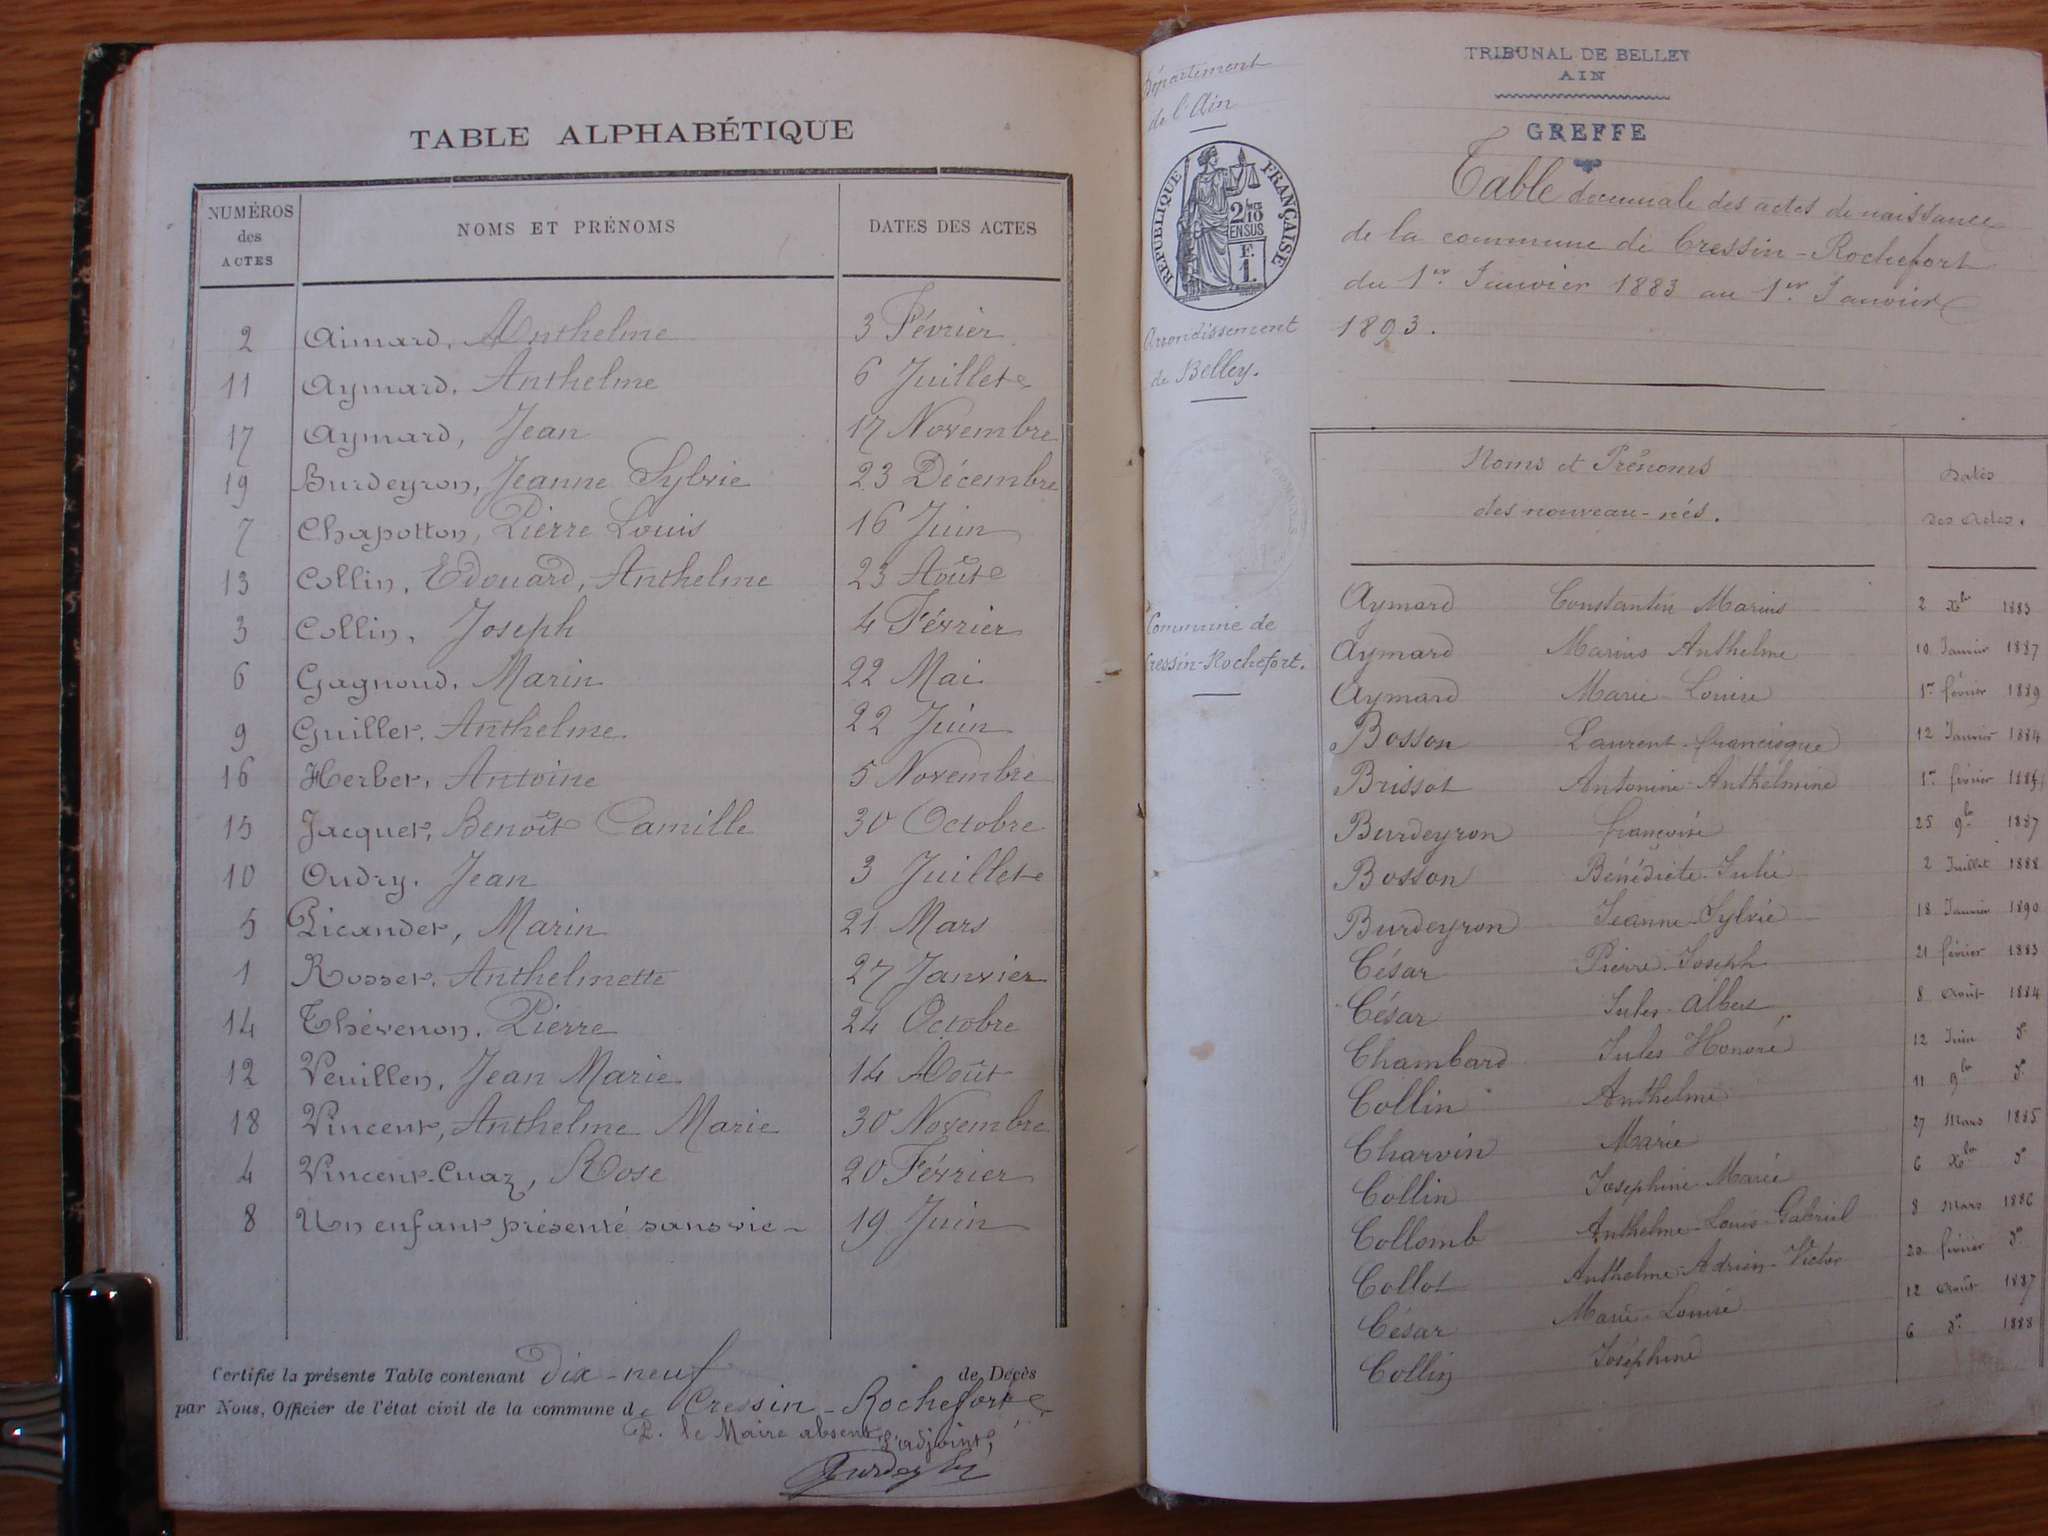 TABLE ALPHABÉTIQUE
NUMÉROS des ACTES NOMS ET PRÉNOMS DATES DES ACTES
2 Aimard, Anthelme 3 Février
11 Aymard, Anthelme 6 Juillet
17 Aymard, Jean 17 Novembre
19 Burdeyron, Jeanne Sylvie 23 Décembre
7 Chapotton, Pierre Louis 16 Juin
13 Collin, Edouard, Anthelme 23 Août
3 Collin, Joseph 4 Février
6 Gagnoud, Marin 22 Mai
9 Guillet, Anthelme 22 Juin
16 Herbet, Antoine 5 Novembre
15 Jacquet, Benoît Camille 30 Octobre
10 Oudry, Jean 3 Juillet
5 Picandet, Marin 21 Mars
1 Rosset, Anthelmette 27 Janvier
14 Thévenon, Pierre 24 Octobre
12 Veuillen, Jean Marie 14 Août
18 Vincent, Anthelme Marie 30 Novembre
4 Vincent-Cuaz, Rose 20 Février
8 Un enfant présenté sans vie 19 Juin
Certifié la présente Table contenant Dix-neuf de Décès
par Nous, Officier de l'état civil de la commune de Cressin-Rochefort
P. le Maire absent, l'adjoint,
TRIBUNAL DE BELLEY
AIN
GREFFE
Département
de l'Ain
RÉPUBLIQUE FRANÇAISE
2/10
EN SUS
F.
1.
Arrondissement
de Belley.
Commune de
Cressin-Rochefort.
Table decennale des actes de naissance
de la commune de Cressin-Rochefort
du 1er Janvier 1883 au 1er Janvier
1893.
Noms et Prénoms des nouveau-nés. Dates des Actes.
Aymard Constantin Marius 2 Xbre 1883
Aymard Marius Anthelme 10 Janvier 1887
Aymard Marie-Louise 1er février 1889
Bosson Laurent-francisque 12 Janvier 1884
Brissot Antonine-Anthelmine 1er février
Burdeyron françoise 25 9bre 1887
Bosson Bénédicte-Julie 2 Juillet 1888
Burdeyron Jeanne-Sylvie 18 Janvier 1890
César Pierre-Joseph 21 février 1883
César Jules-Albert 8 Août 1884
Chambard Jules Honoré 12 Juin do
Collin Anthelme 11 9bre do
Charvin Marie 27 Mars 1885
Collin Joséphine-Marie 6 Xbre do
Collomb Anthelme-Louis-Gabriel 8 Mars 1886
Collot Anthelme-Adrien-Victor 20 février do
César Marie-Louise 12 Août 1887
Collin Joséphine 6 do 1888